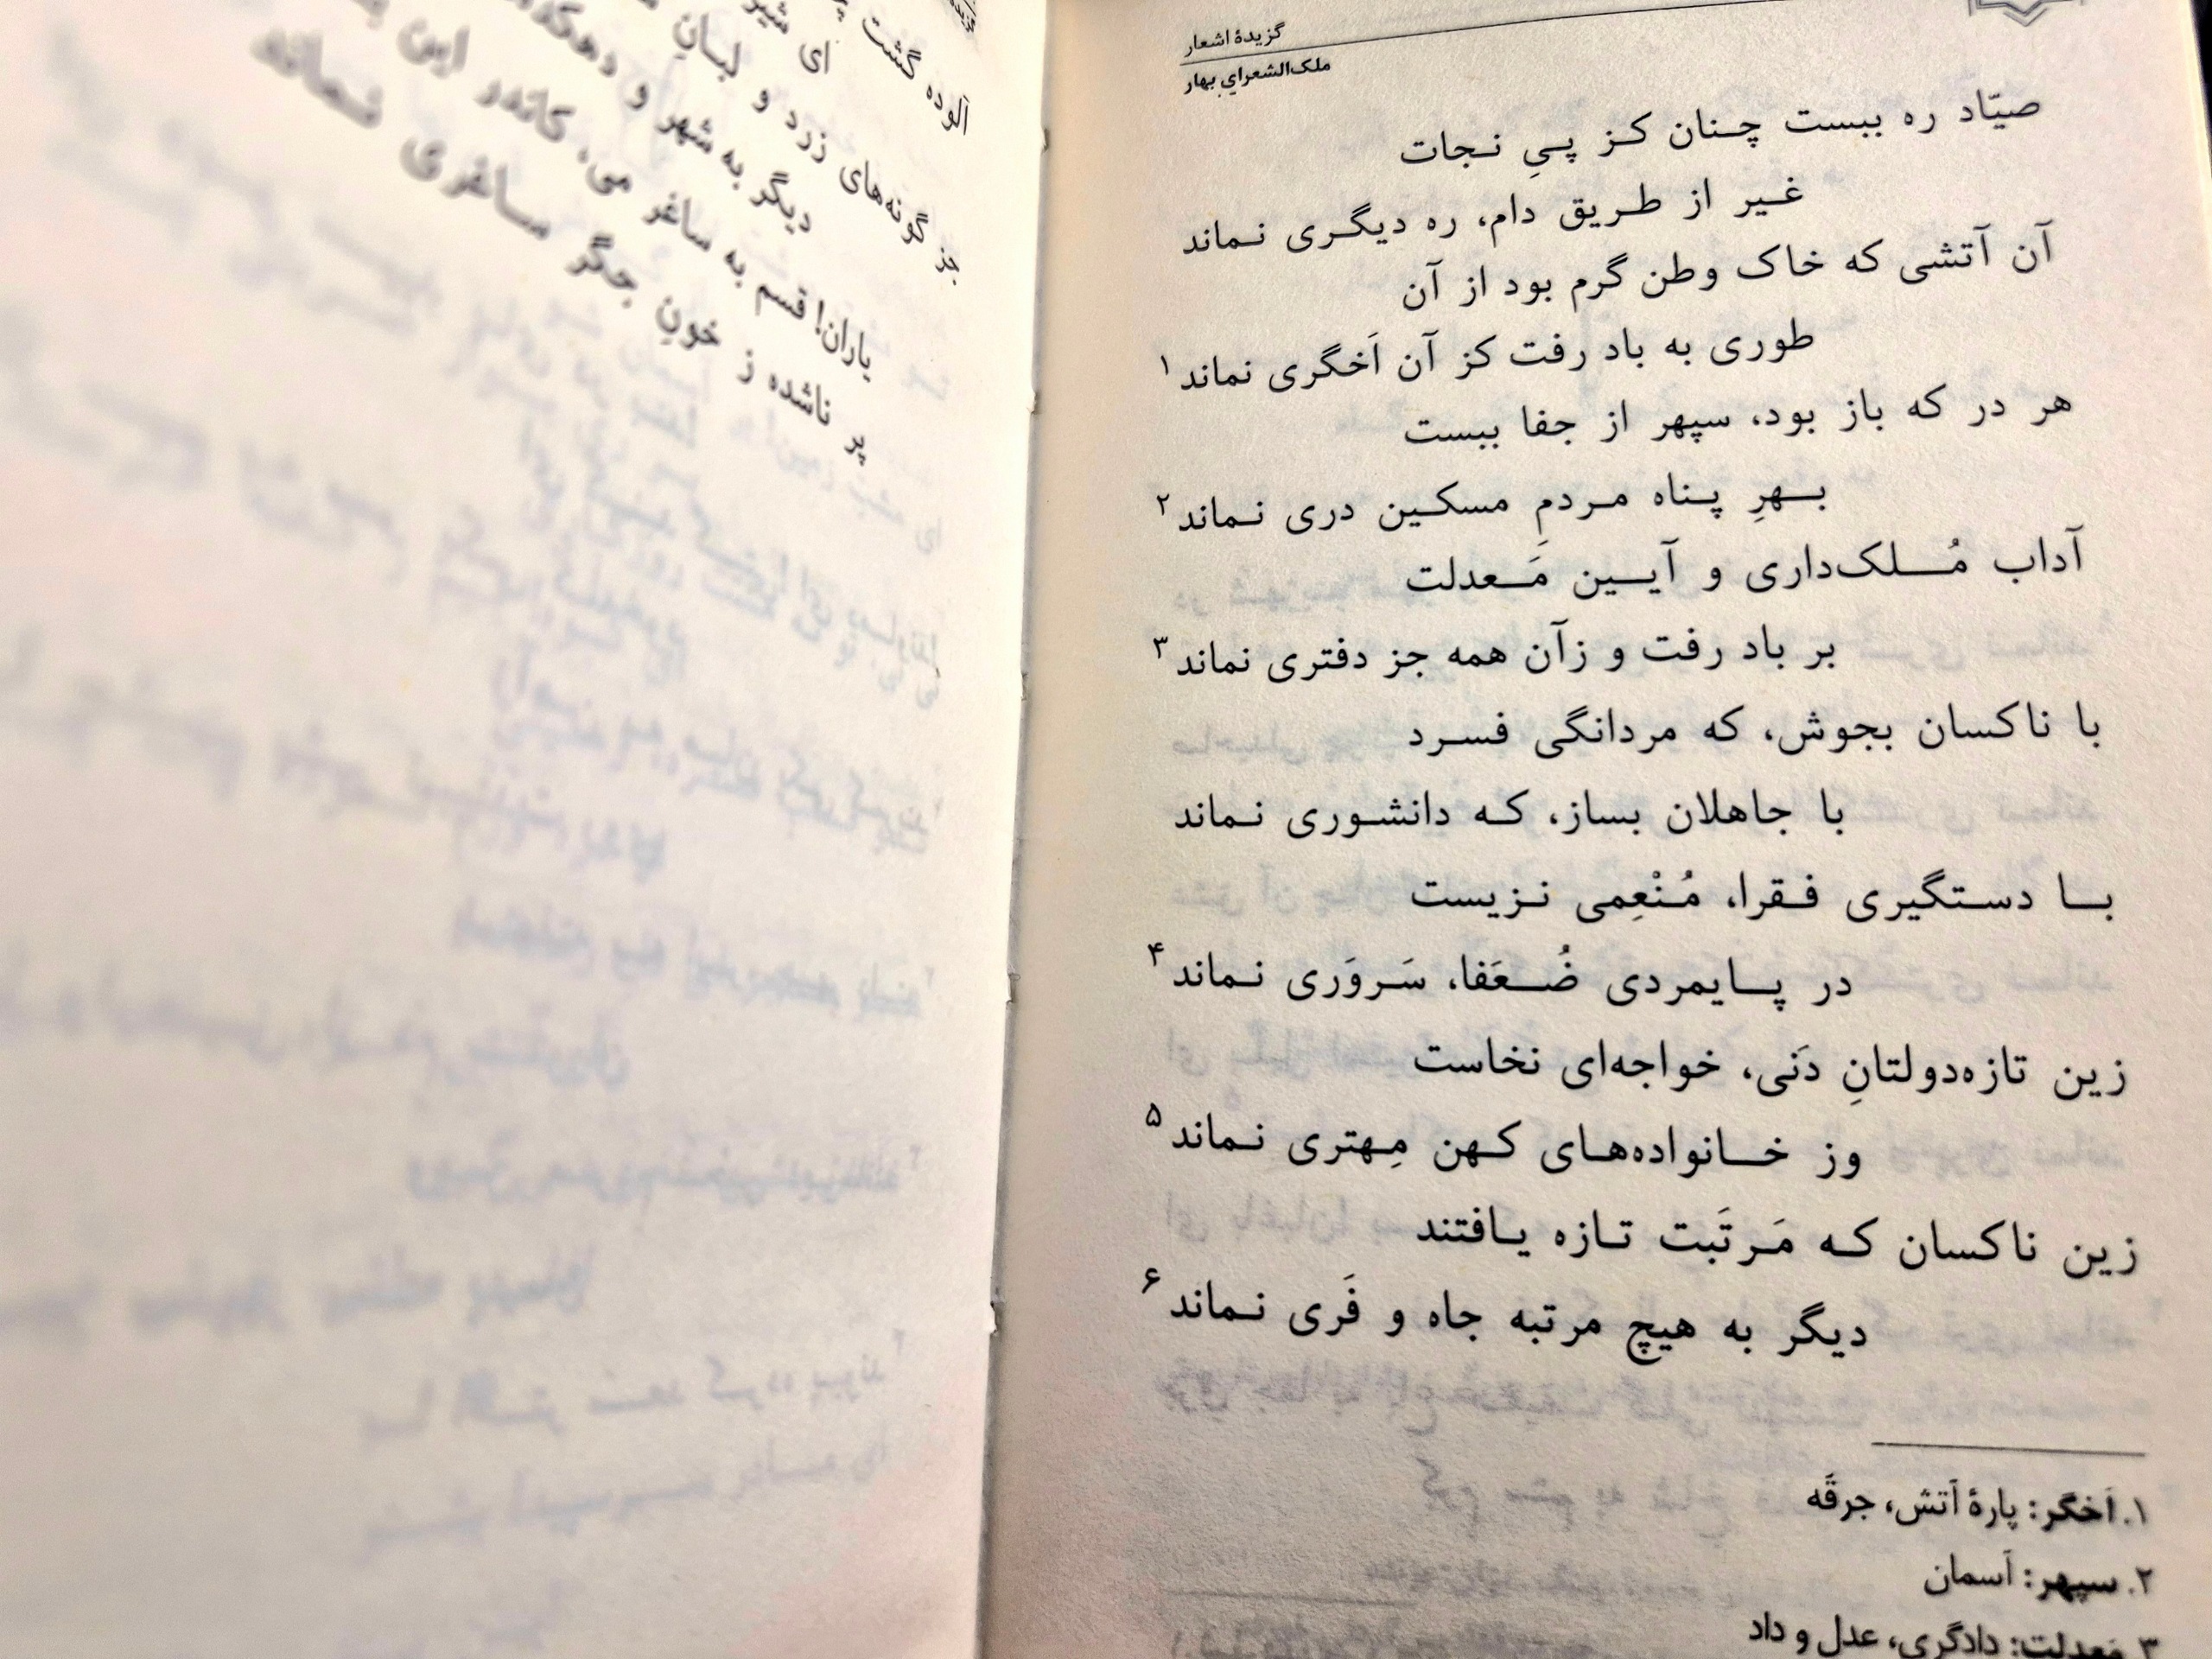 گزیدهٔ اشعار
ملک‌الشعرای بهار
صیّاد ره ببست چنان کز پیِ نجات
غیر از طریق دام، ره دیگری نماند
آن آتشی که خاک وطن گرم بود از آن
طوری به باد رفت کز آن اَخگری نماند۱
هر در که باز بود، سپهر از جفا ببست
بهرِ پناه مردمِ مسکین دری نماند۲
آداب مُلک‌داری و آیین مَعدلت
بر باد رفت و زآن همه جز دفتری نماند۳
با ناکسان بجوش، که مردانگی فسرد
با جاهلان بساز، که دانشوری نماند
با دستگیری فقرا، مُنْعِمی نزیست
در پایمردی ضُعَفا، سَروَری نماند۴
زین تازه‌دولتانِ دَنی، خواجه‌ای نخاست
وز خانواده‌های کهن مِهتری نماند۵
زین ناکسان که مَرتَبت تازه یافتند
دیگر به هیچ مرتبه جاه و فَری نماند۶
۱. اَخگر: پارهٔ آتش، جرقَه
۲. سپهر: آسمان
۳. مَعدلت: دادگری، عدل و داد
آلوده گشت
ای شیر
جز گونه‌های زرد و لبانِ
دیگر به شهر و دهکده
یاران! قسم به ساغر می، کاندر این
پر ناشده ز خونِ جگر ساغری نماند